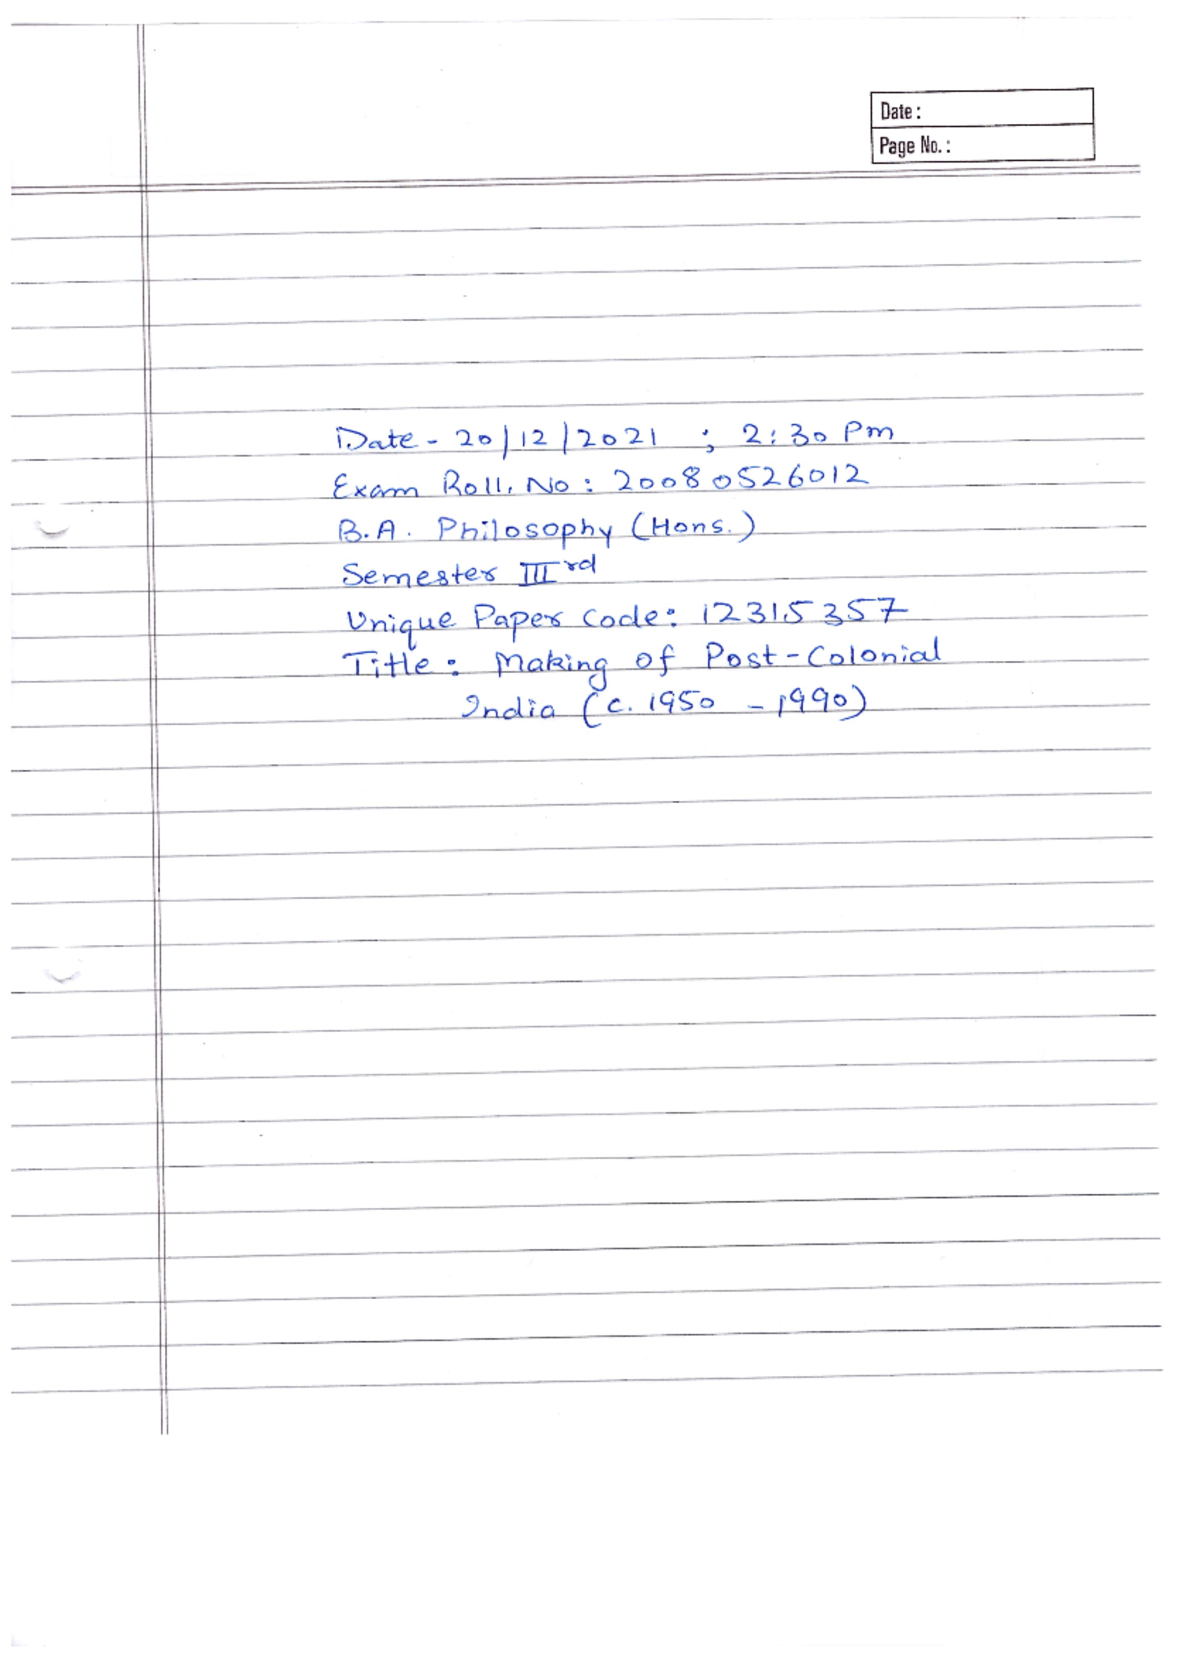 Date:
Page No.:
Date - 20/12/2021 ; 2:30 Pm
Exam Roll. No : 20080526012
B.A. Philosophy (Hons.)
Semester III rd
Unique Paper Code: 12315357
Title: Making of Post-Colonial
India (c. 1950 - 1990)